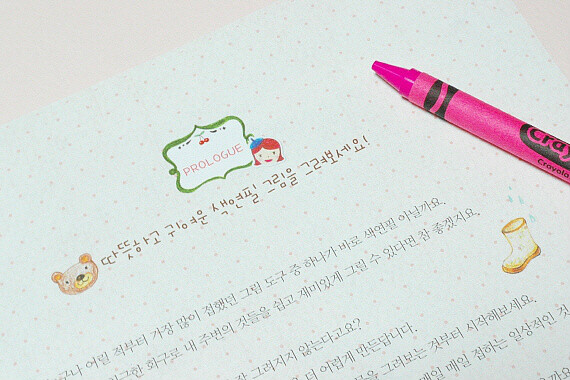 PROLOGUE
따뜻하고 귀여운 색연필 그림을 그려보세요!
어릴 적부터 가장 많이 접했던 그림 도구 중 하나가 바로 색연필 아닐까요.
화구로 내 주변의 것들을 쉽고, 재미있게 그릴 수 있다면 참 좋겠지요.
잘 그려지지 않는다고요?
더 어렵게 만든답니다.
그려보는 것부터 시작해보세요.
매일 매일 접하는 일상적인 것
Cray
Crayola